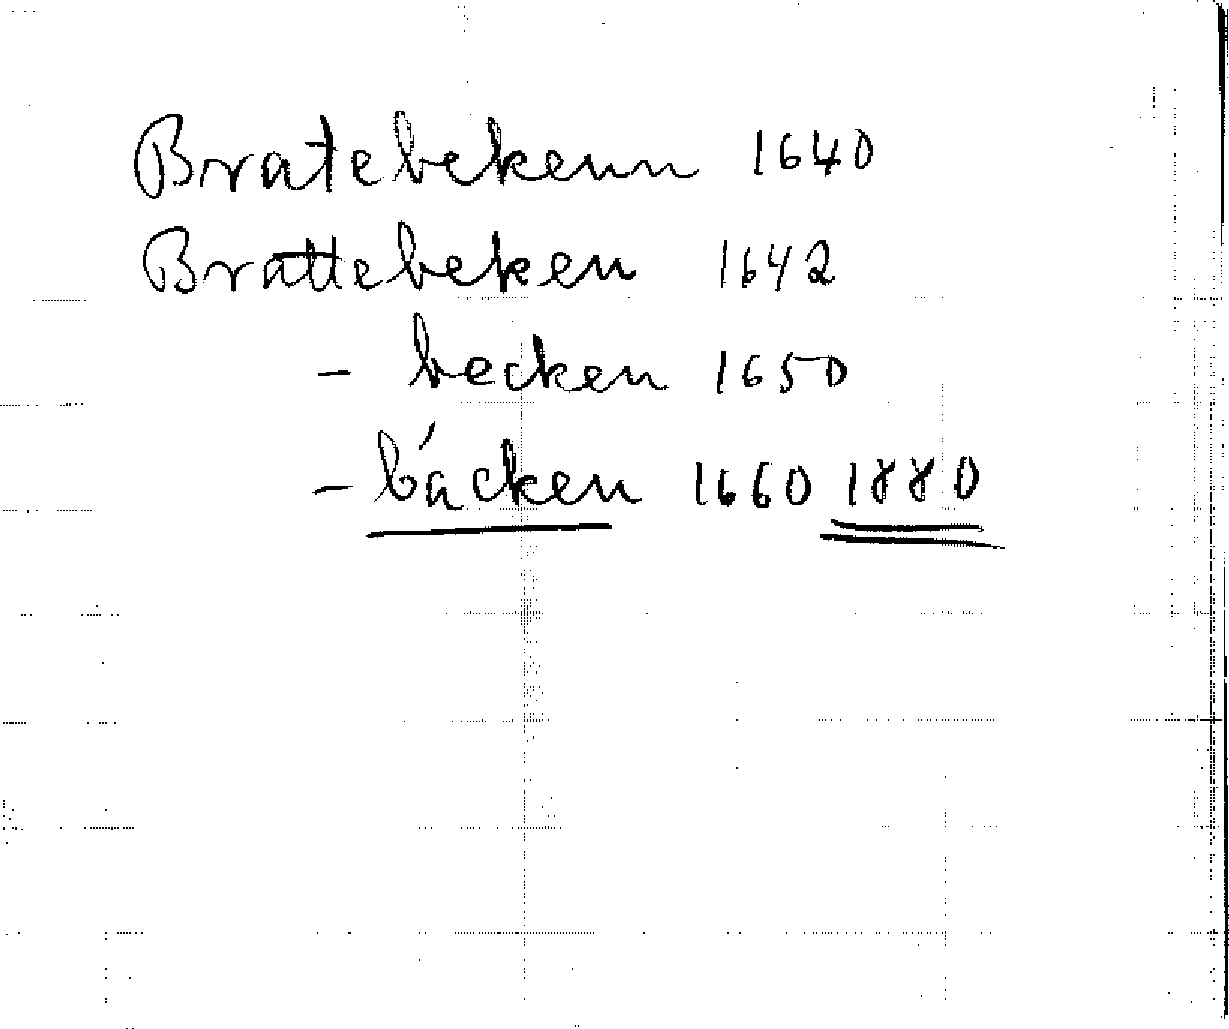 Bratebekenn 1640
Brattebeken 1642
- becken 1650
- bácken 1660 1880